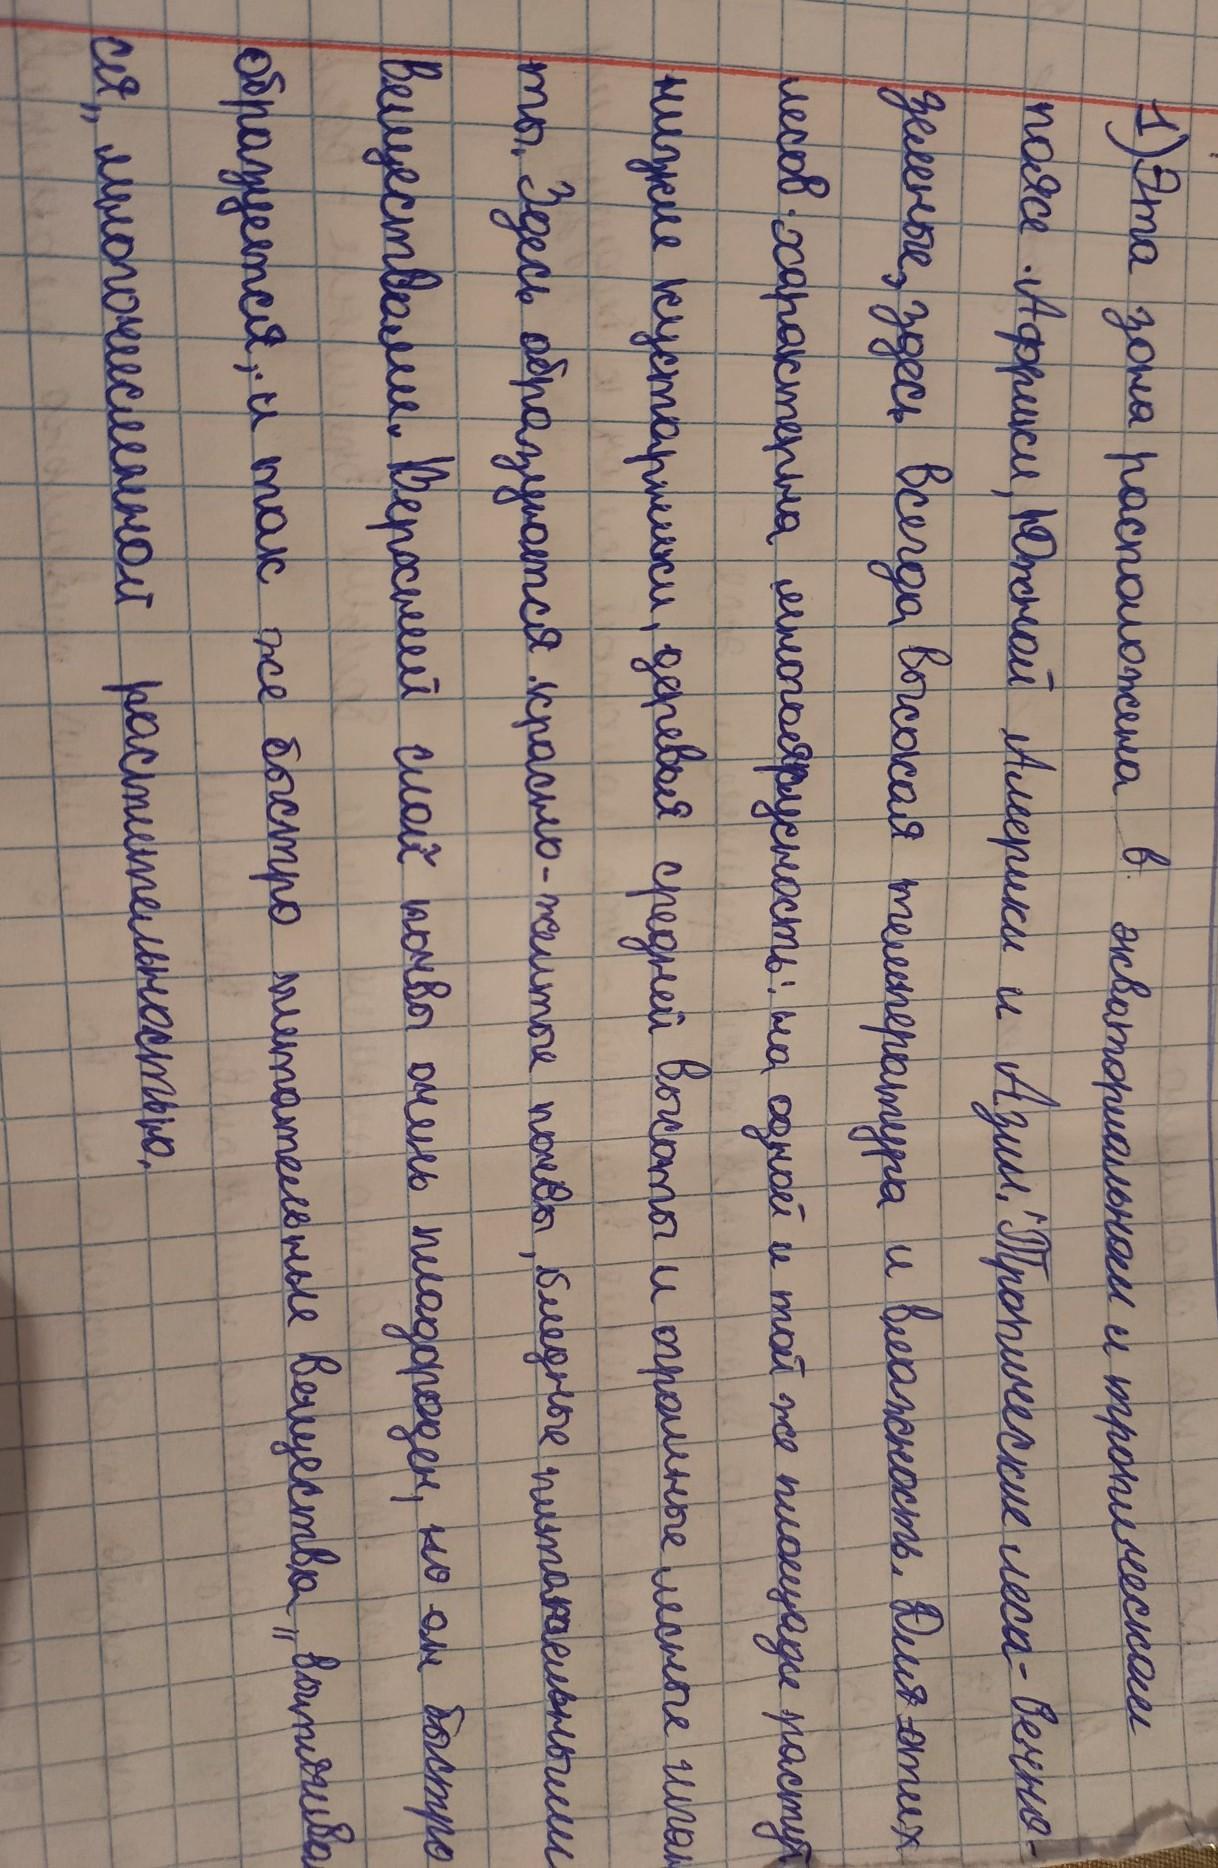 1) Эта зона расположена в экваториальном и тропическом
поясе Африки, Южной Америки и Азии. Тропические леса - вечно-
зеленые, здесь всегда высокая температура и влажность. Для этих
лесов характерна многоярусность: на одной и той же площади растут
низкие кустарники, деревья средней высоты и огромные лесные гиган
ты. Здесь образуются красно-желтые почвы, бледные питательными
веществами. Верхний слой почвы очень плодороден, но он быстро
образуется, и так же быстро питательные вещества „вытягива
ся„ многочисленной растительностью.